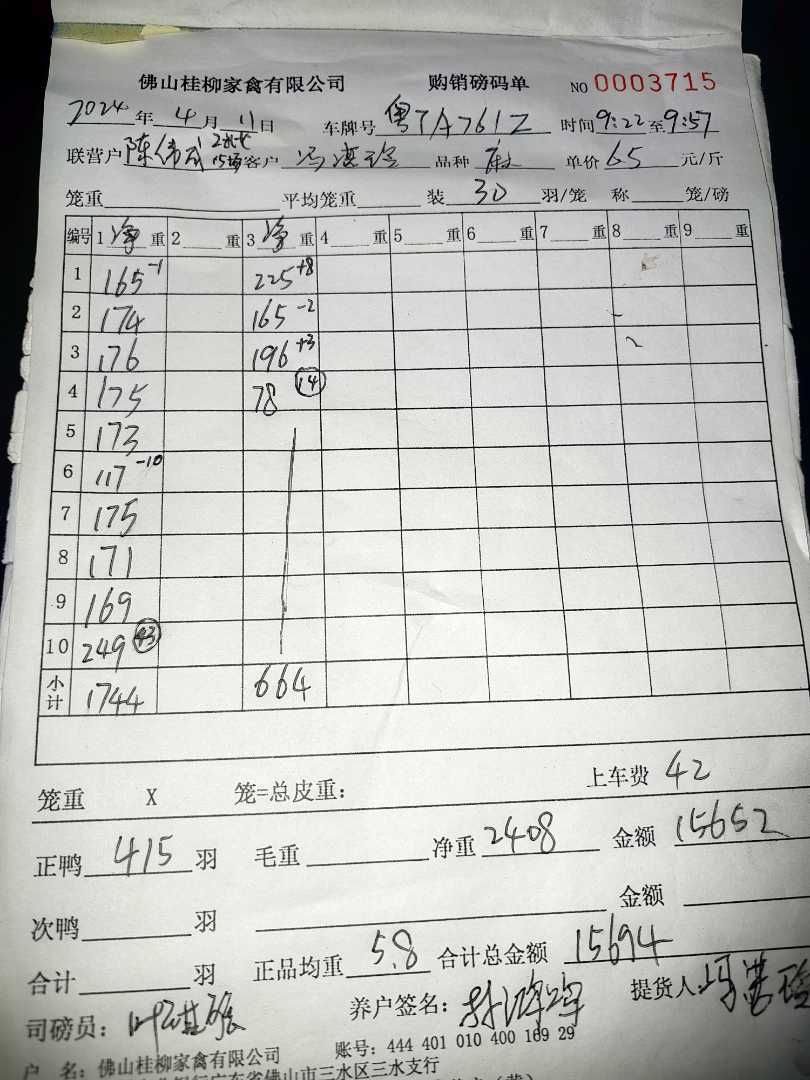 佛山桂柳家禽有限公司 购销磅码单 NO 0003715
2024年4月11日 车牌号 粤TA761Z 时间9:22至9:57
联营户 陈伟 客户 冯 品种 单价 65 元/斤
笼重 平均笼重 装 30 羽/笼 称 笼/磅
编号 1 净重 2 重 3 净重 4 重 5 重 6 重 7 重 8 重 9 重
1 165 -1 225 +8
2 174 165 -2
3 176 196 +3
4 175 78 14
5 173
6 117 -10
7 175
8 171
9 169
10 249 43
小计 1744 664
上车费 42
笼重 X 笼=总皮重:
正鸭 415 羽 毛重 净重 2408 金额 15652
次鸭 羽 金额
合计 羽 正品均重 5.8 合计总金额 15694
司磅员: 叶 养户签名: 提货人: 冯
户 名: 佛山桂柳家禽有限公司 账号: 444 401 010 400 169 29
广东省佛山市三水区三水支行